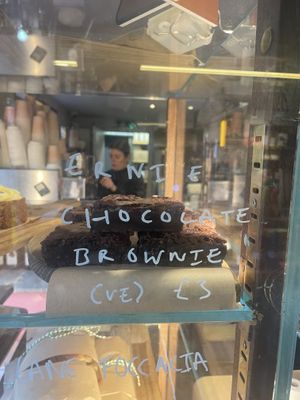 ERNIE
CHOCOLATE
BROWNIE
(VE) £3
FOCCACIA